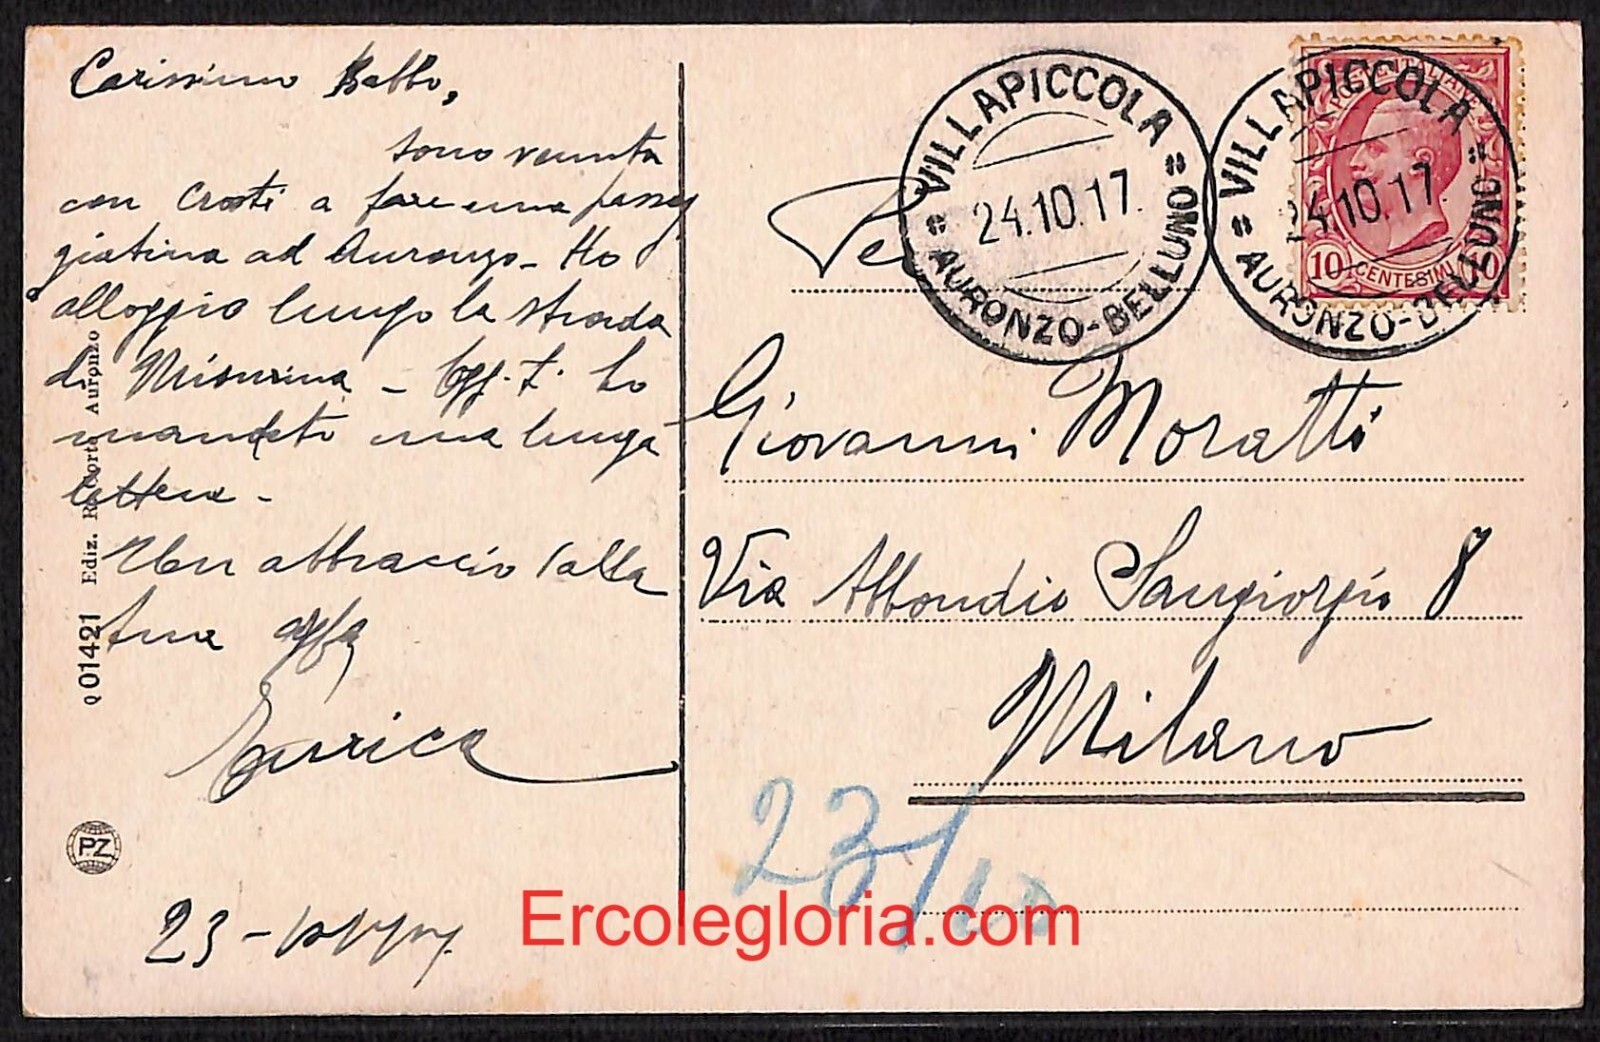 Carissimo Babbo,
sono venuta
con Crosti a fare una passeg
giatina ad Auronzo - Ho
alloggio lungo la strada
di Misurina - Ogg. t. ho
mandato una lunga
lettera -
Un abbraccio dalla
tua aff.
Enrica
23-
Q 01421 Ediz. Auronzo
PZ
VILLAPICCOLA
24.10.17.
AURONZO-BELLUNO
VILLAPICCOLA
24.10.17.
AURONZO-BELLUNO
POSTE ITALIANE
10 CENTESIMI 10
Giovanni Moratti
Via Abbondio Sangiorgio 8
Milano
23/10
Ercolegloria.com